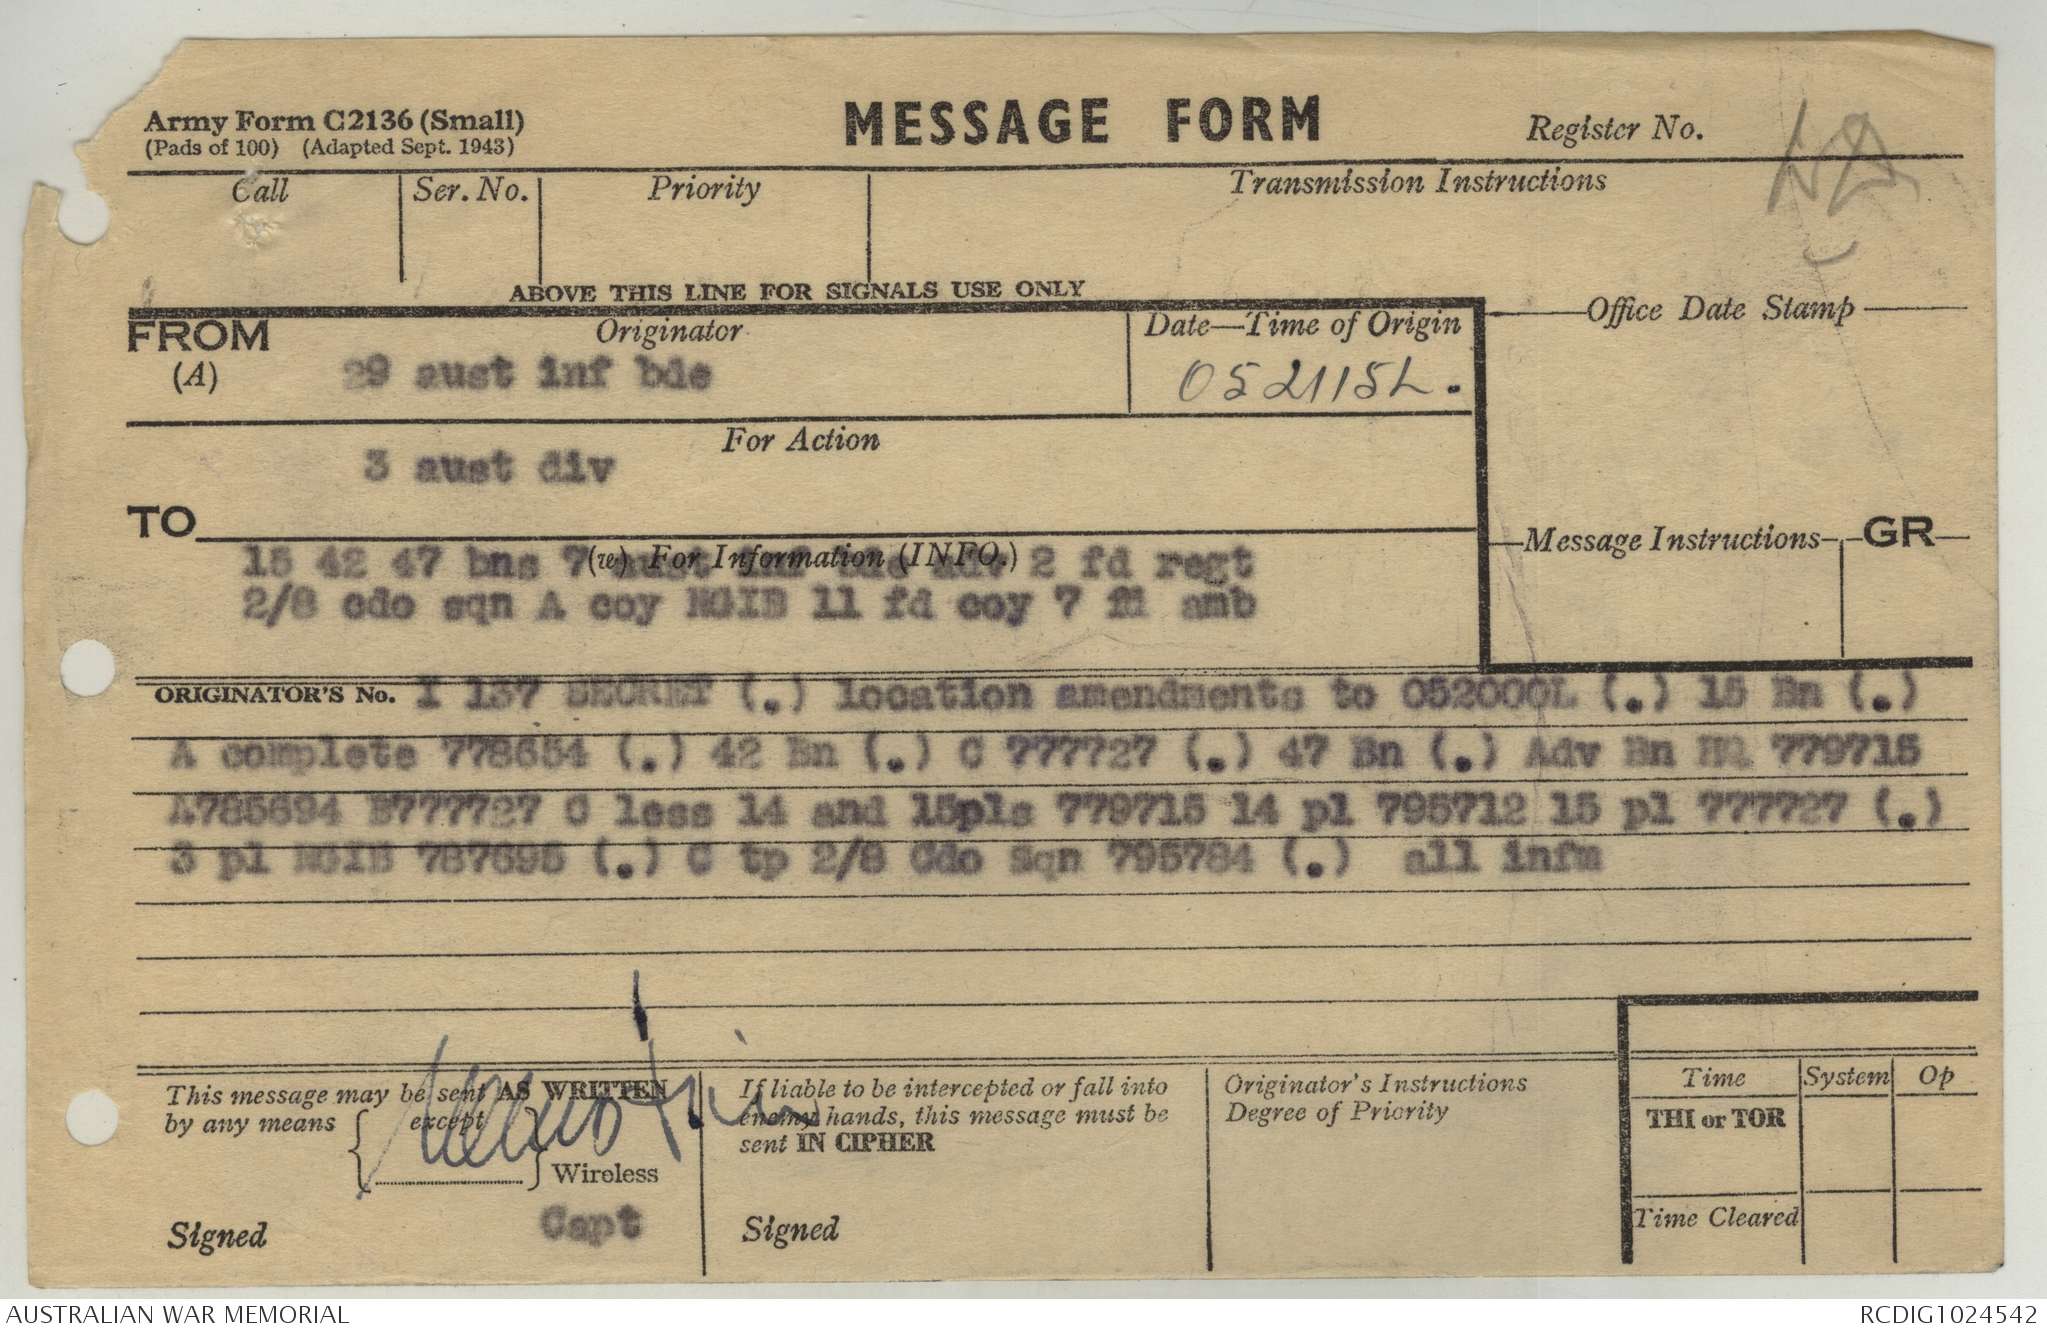 Army Form C2136 (Small)
(Pads of 100) (Adapted Sept. 1943)
MESSAGE FORM
Register No.
Call
Ser. No.
Priority
Transmission Instructions
ABOVE THIS LINE FOR SIGNALS USE ONLY
FROM
(A)
Originator
29 aust inf bde
Date—Time of Origin
052115L.
Office Date Stamp
For Action
3 aust div
TO
(w) For Information (INFO.)
15 42 47 bns 7 aust inf bde adv 2 fd regt
2/8 cdo sqn A coy NGIB 11 fd coy 7 fd amb
Message Instructions
GR
ORIGINATOR'S No. I 137 SECRET (.) location amendments to 052000L (.) 15 Bn (.)
A complete 778654 (.) 42 Bn (.) C 777727 (.) 47 Bn (.) Adv Bn HQ 779715
A785694 B777727 C less 14 and 15pls 779715 14 pl 795712 15 pl 777727 (.)
3 pl NGIB 787695 (.) C tp 2/8 Cdo Sqn 795784 (.) all infm
This message may be sent AS WRITTEN
by any means except
Wireless
Signed
Capt
If liable to be intercepted or fall into
enemy hands, this message must be
sent IN CIPHER
Signed
Originator's Instructions
Degree of Priority
Time
System
Op
THI or TOR
Time Cleared
AUSTRALIAN WAR MEMORIAL
RCDIG1024542